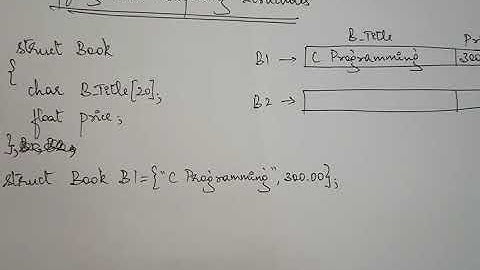 Structures
struct Book
{
char B_Title[20];
float price;
};
struct Book B1={"C Programming", 300.00};
B_Title Pr
B1 → C Programming 300
B2 →